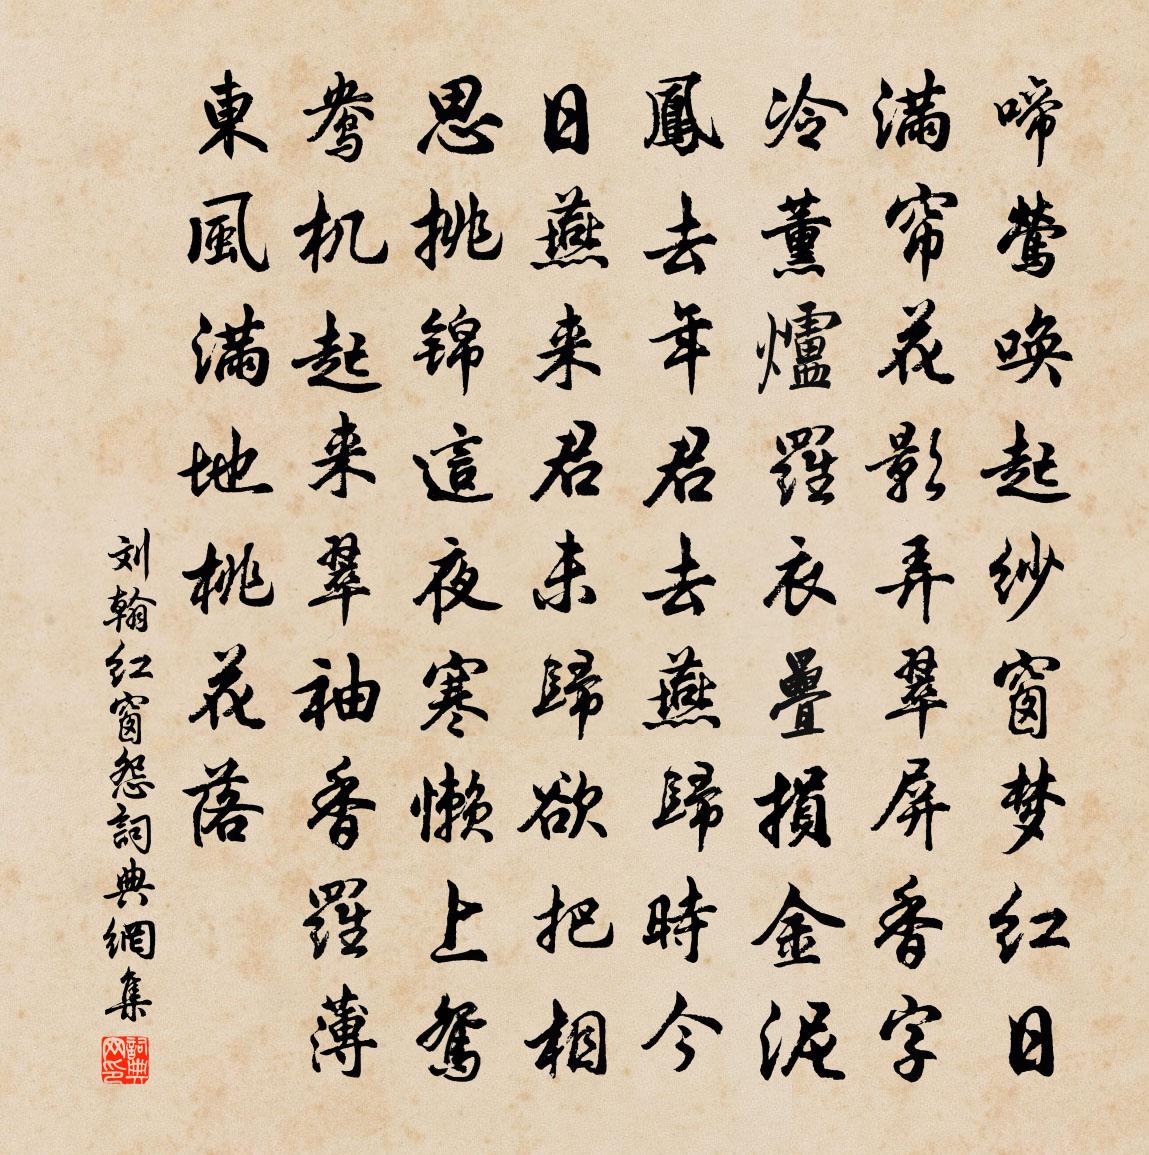 啼鶯唤起紗窗梦红日
满帘花影弄翠屏香字
冷薰爐羅衣疊損金泥
鳳去年君去燕歸時今
日燕来君未歸欲把相
思挑锦這夜寒懒上鴛
鴦机起来翠袖香羅薄
東風满地桃花落
刘翰红窗怨詞典網集
詞典网印